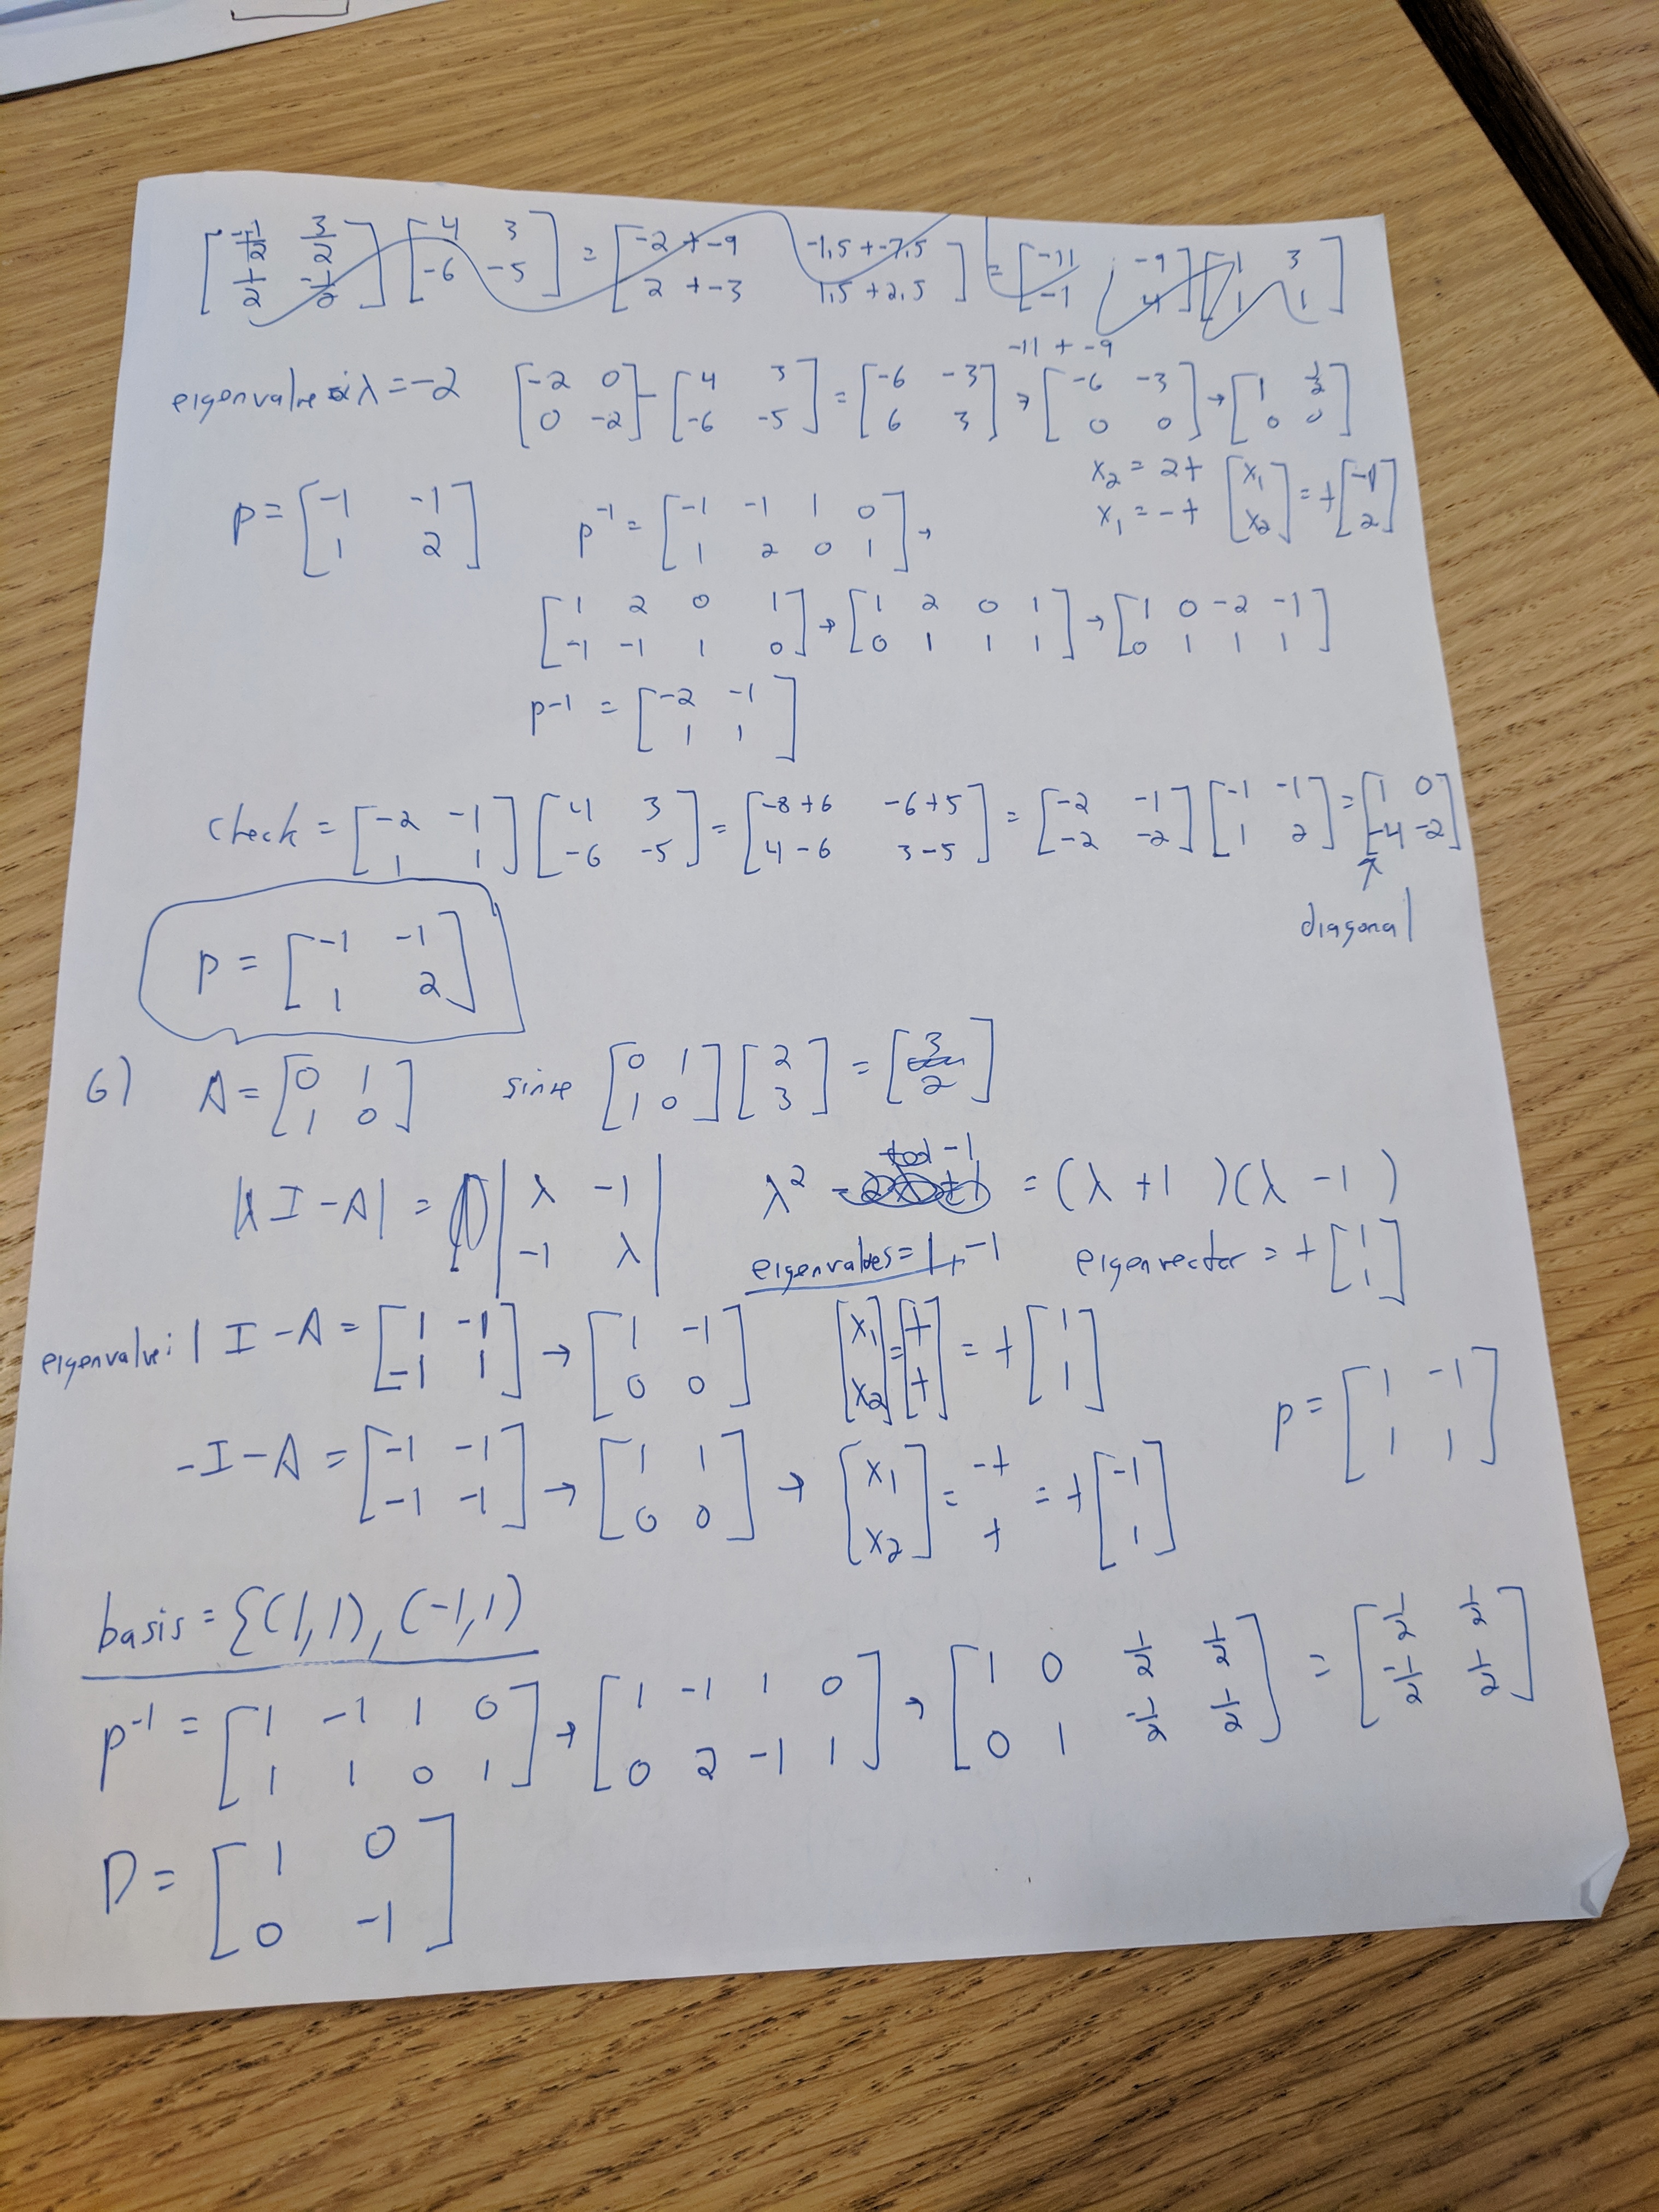 [-1/2 3/2; 1/2 -1/2] [4 3; -6 -5] = [-2 + -9 -1.5 + -7.5; 2 + -3 1.5 + 2.5] = [-11 -9; -1 4] [-1 3; 1 1]
-11 + -9
eigenvalue λ = -2 [-2 0; 0 -2] - [4 3; -6 -5] = [-6 -3; 6 3] → [-6 -3; 0 0] → [1 1/2; 0 0]
x₂ = 2t x₁ = -t [x₁; x₂] = t[-1; 2]
P = [-1 -1; 1 2] p⁻¹ = [-1 -1 1 0; 1 2 0 1] →
[1 2 0 1; -1 -1 1 0] → [1 2 0 1; 0 1 1 1] → [1 0 -2 -1; 0 1 1 1]
p-1 = [-2 -1; 1 1]
check = [-2 -1; 1 1] [4 3; -6 -5] = [-8+6 -6+5; 4-6 3-5] = [-2 -1; -2 -2] [-1 -1; 1 2] = [1 0; -4 -2]
↑
diagonal
P = [-1 -1; 1 2]
6) A = [0 1; 1 0] since [0 1; 1 0] [2; 3] = [3; 2]
|λI - A| = |λ -1; -1 λ| λ² -1 = (λ + 1)(λ - 1)
eigenvalues = 1, -1 eigenvector = t[1; 1]
eigenvalue: 1 I - A = [1 -1; -1 1] → [1 -1; 0 0] [x₁; x₂] = [t; t] = t[1; 1]
P = [1 -1; 1 1]
-I - A = [-1 -1; -1 -1] → [1 1; 0 0] → [x₁; x₂] = -t t = t[-1; 1]
basis = {(1,1), (-1,1)
P⁻¹ = [1 -1 1 0; 1 1 0 1] → [1 -1 1 0; 0 2 -1 1] → [1 0 1/2 1/2; 0 1 -1/2 1/2] = [1/2 1/2; -1/2 1/2]
D = [1 0; 0 -1]